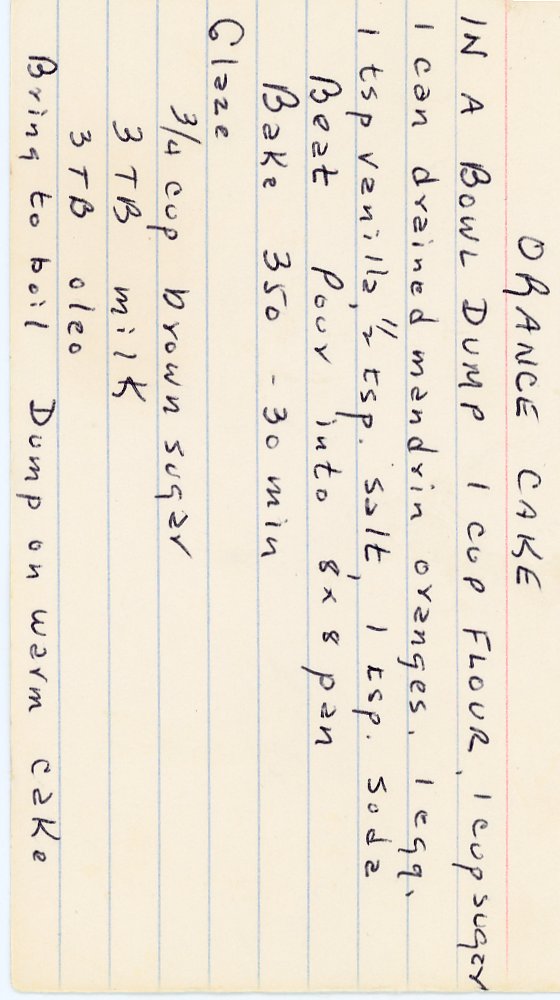 ORANGE CAKE
IN A BOWL DUMP 1 CUP FLOUR, 1 cup sugar
1 can drained mandrin oranges, 1 egg,
1 tsp vanilla, 1/2 tsp. salt, 1 tsp. soda
Beat pour into 8x8 pan
Bake 350 - 30 min
Glaze
3/4 cup brown sugar
3 TB milk
3 TB oleo
Bring to boil Dump on warm cake